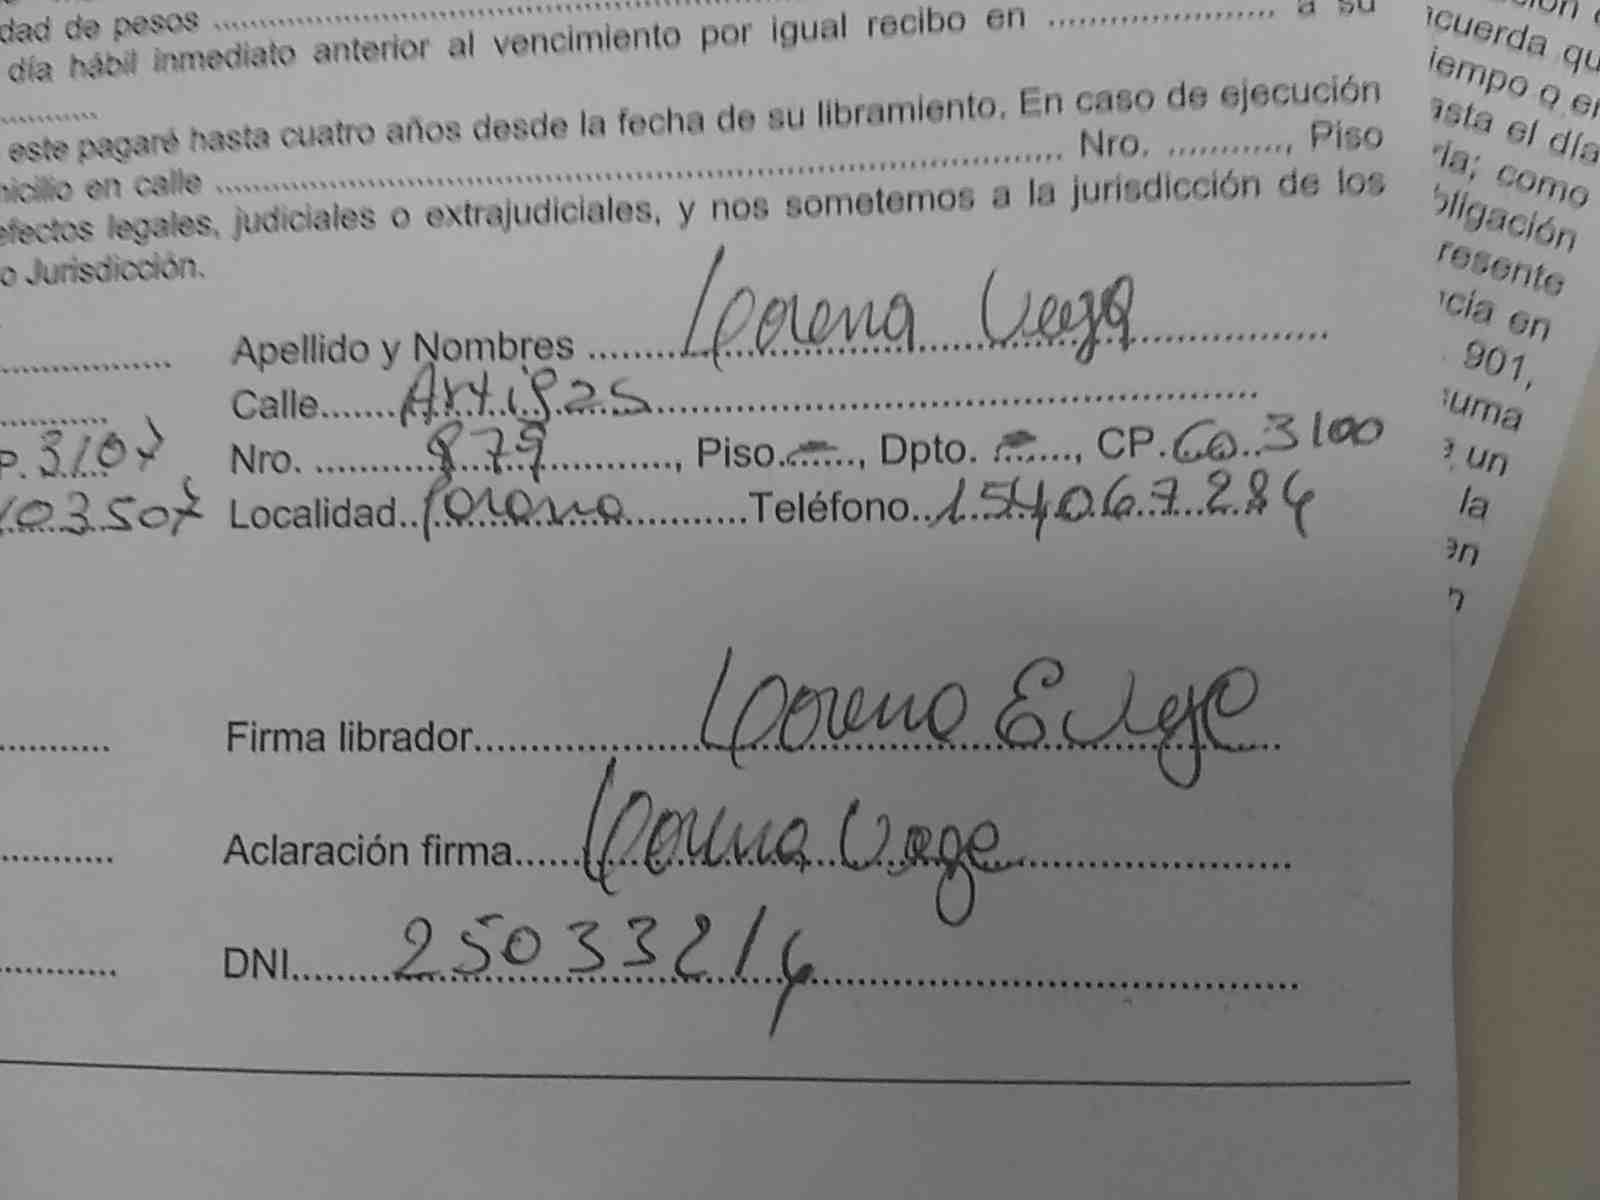 dad de pesos ........................
día hábil inmediato anterior al vencimiento por igual recibo en ........................ a su
........................
este pagaré hasta cuatro años desde la fecha de su libramiento. En caso de ejecución
icilio en calle ........................ Nro. ............, Piso
efectos legales, judiciales o extrajudiciales, y nos sometemos a la jurisdicción de los
o Jurisdicción.
Apellido y Nombres ........ Lorena Vega ........
Calle....... Artigas ........
P. 3107 Nro. ........ 879 ........, Piso. - ...., Dpto. - ...., CP. 3100
Localidad.. Parana ........Teléfono.. 154067284
Firma librador........ Lorena E Vega
Aclaración firma...... Lorena Vega ........
DNI........ 25033214 ........
cuerda qu
iempo o en
asta el día
ría; como
bligación
resente
cia en
901,
suma
un
la
en
n